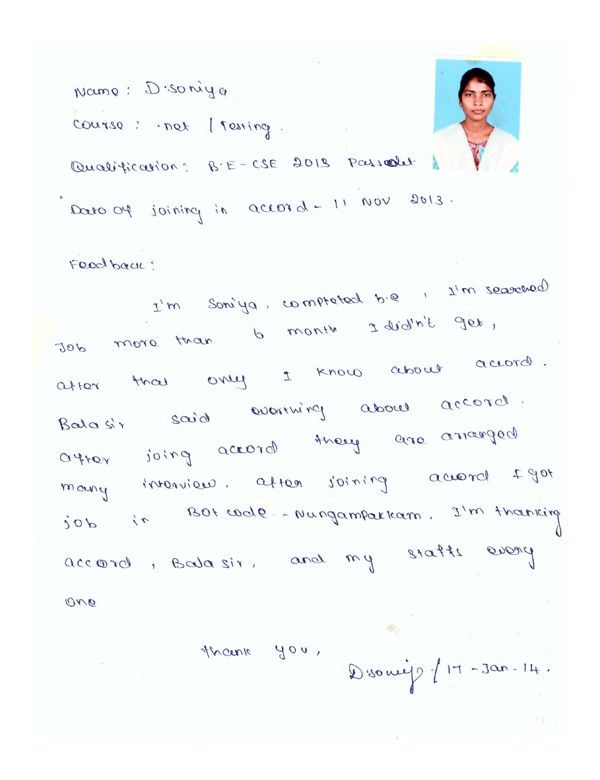 Name : D.Soniya
Course : .net / Testing .
Qualification : B.E - CSE 2013 Passedout
Date of joining in accord - 11 Nov 2013 .
Feedback :
I'm Soniya , completed b.e , I'm searched
Job more than 6 month I didn't get ,
after that only I know about accord .
Bala sir said everthing about accord .
after joing accord they are arranged
many interview . after joining accord I got
job in Bot code - Nungampakkam . I'm thanking
accord , Bala sir , and my staffs every
one
Thank you ,
D.Soniya / 17 - Jan - 14 .